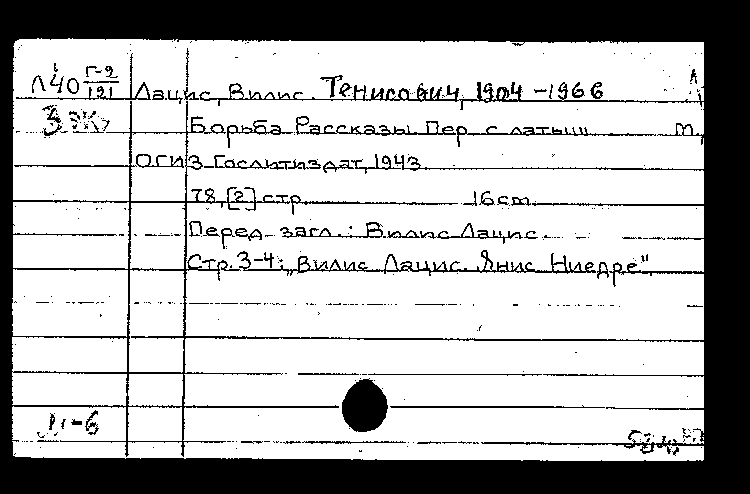 Л40 Г-9/121 Лацис, Вилис Тенисович, 1904-1966
Борьба Рассказы Пер с латыш М,
ОГИЗ Гослитиздат, 1943.
78, [2] стр. 16 cm.
Перед загл.: Вилис Лацис.
Стр. 3-4: „Вилис Лацис. Янис Ниедре".